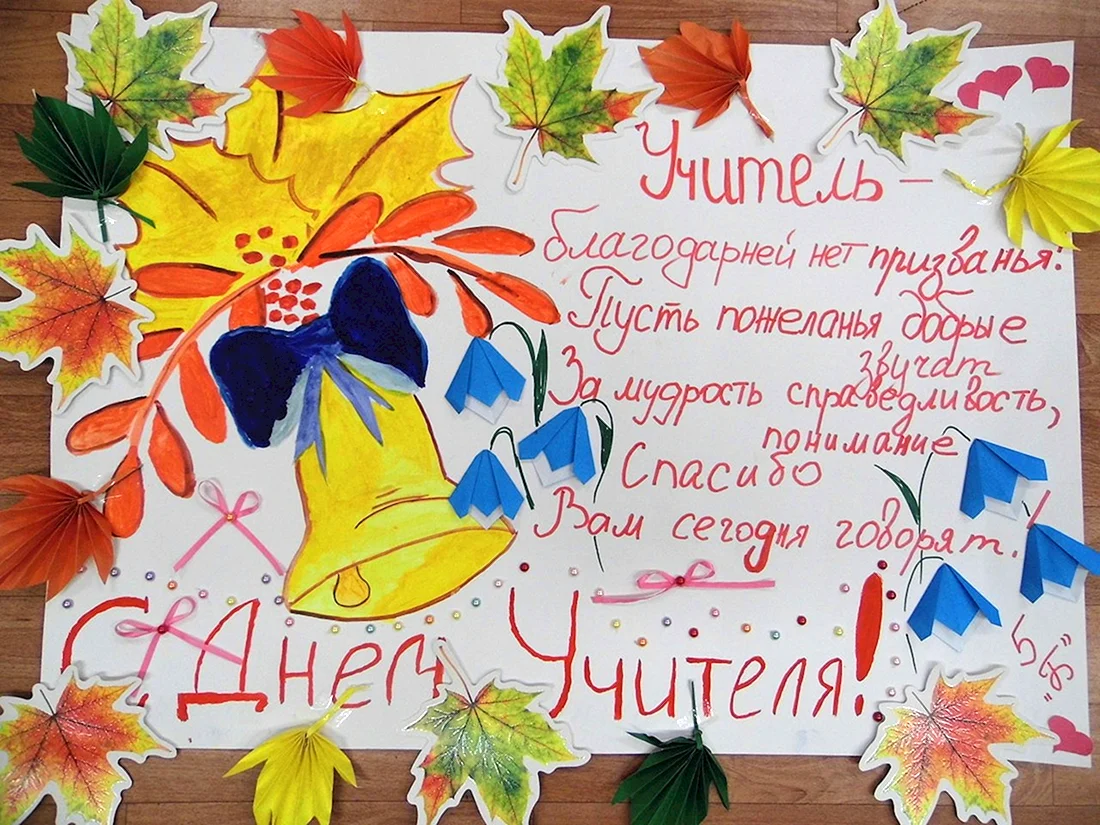 Учитель –
благодарней нет призванья!
Пусть пожеланья добрые
звучат
За мудрость справедливость,
понимание
Спасибо
Вам сегодня говорят.
С Днем Учителя!
5 "Б"